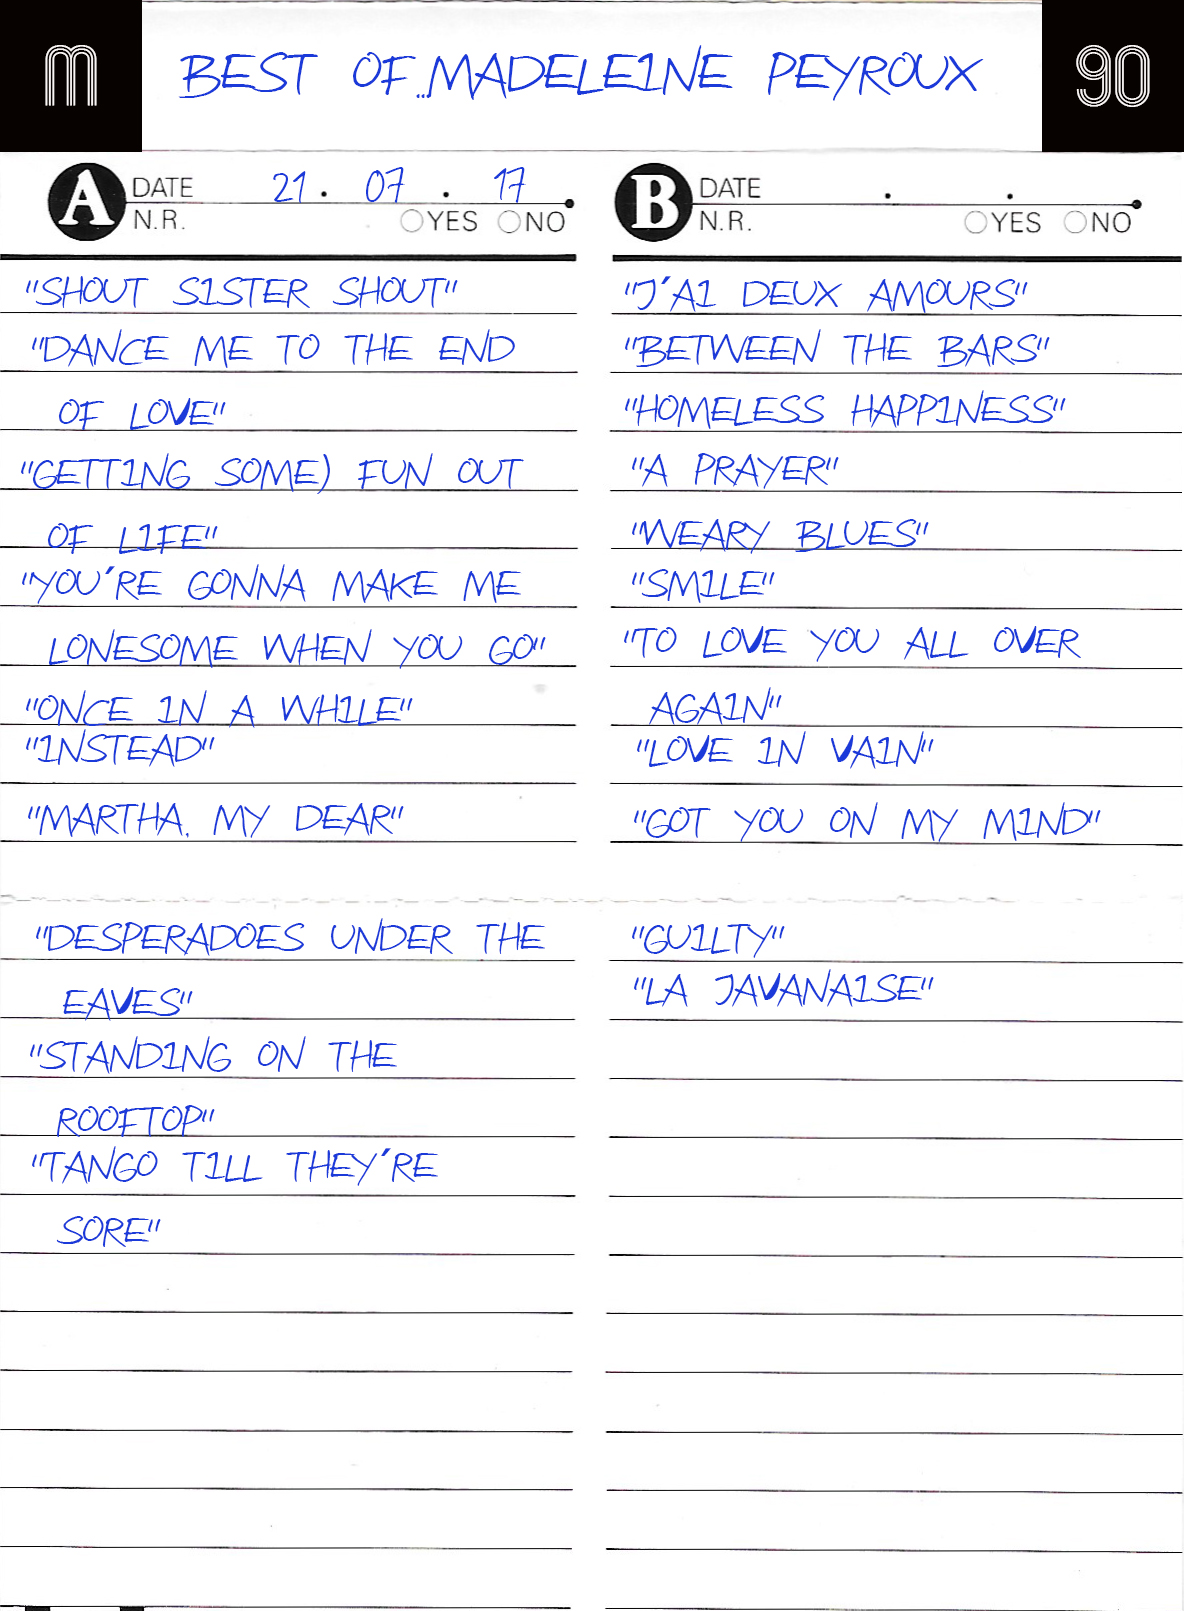 m
BEST OF...MADELEINE PEYROUX
90
A DATE 21 . 07 . 17
N.R. YES NO
"SHOUT SISTER SHOUT"
"DANCE ME TO THE END
OF LOVE"
"GETTING SOME) FUN OUT
OF LIFE"
"YOU'RE GONNA MAKE ME
LONESOME WHEN YOU GO"
"ONCE IN A WHILE"
"INSTEAD"
"MARTHA, MY DEAR"
"DESPERADOES UNDER THE
EAVES"
"STANDING ON THE
ROOFTOP"
"TANGO TILL THEY'RE
SORE"
B DATE . .
N.R. YES NO
"J'AI DEUX AMOURS"
"BETWEEN THE BARS"
"HOMELESS HAPPINESS"
"A PRAYER"
"WEARY BLUES"
"SMILE"
"TO LOVE YOU ALL OVER
AGAIN"
"LOVE IN VAIN"
"GOT YOU ON MY MIND"
"GUILTY"
"LA JAVANAISE"